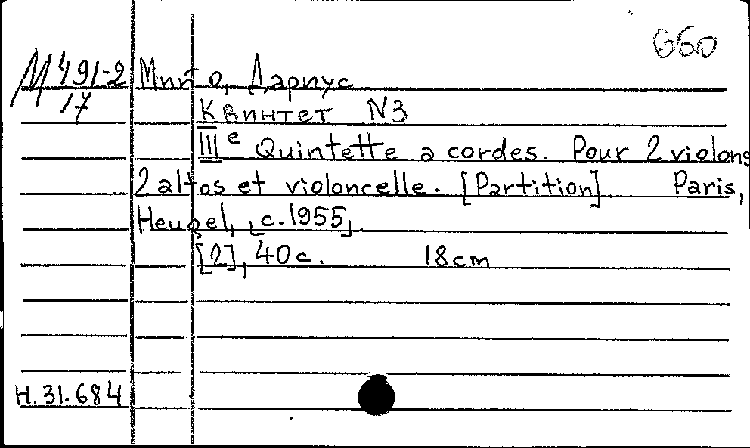 660
М 491-2 Мийо, Дариус
17 Квинтет N3
IIIe Quintette a cordes. Pour 2 violons
2 altos et violoncelle. [Partition] Paris,
Heugel, [c. 1955].
[2], 40 c. 18 cm
Н. 31.684